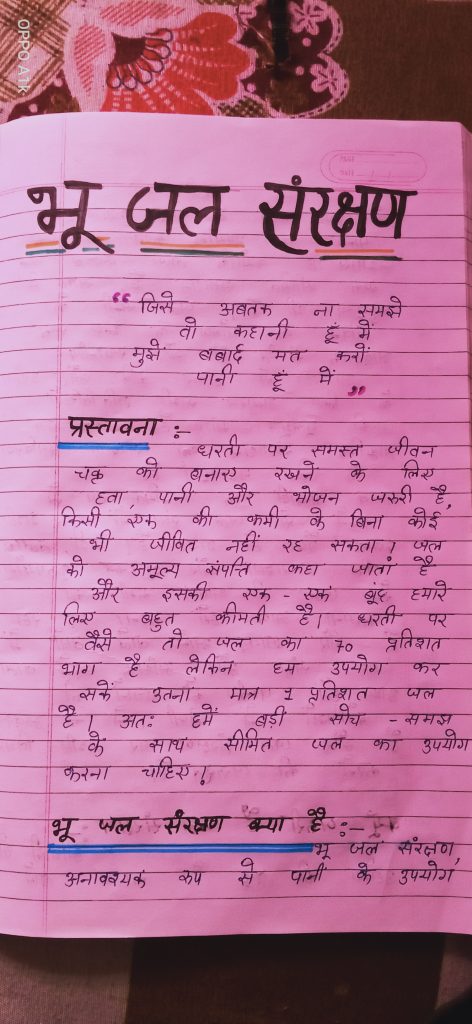 OPPO A1K
भू जल संरक्षण
“ जिसे अबतक ना समझे
तो कहानी हूँ में
मुझे बबार्द मत करों
पानी हूँ में ”
प्रस्तावना :-
धरती पर समस्त जीवन
चक्र को बनाए रखने के लिए
हवा, पानी और भोजन जरुरी है,
किसी एक की कमी के बिना कोई
भी जीवित नहीं रह सकता। जल
को अमूल्य संपत्ति कहा जाता है
और इसकी एक - एक बूंद हमारे
लिए बहुत कीमती है। धरती पर
वैसे तो जल का 70 प्रतिशत
भाग है लेकिन हम उपयोग कर
सकें उतना मात्र 1 प्रतिशत जल
है। अतः हमें बड़ी सोच - समझ
के साथ सीमित जल का उपयोग
करना चाहिए।
भू जल संरक्षण क्या है :-
भू जल संरक्षण,
अनावश्यक रूप से पानी के उपयोग